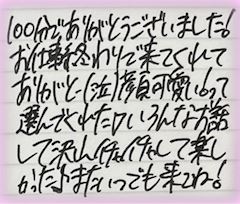 100分でありがとうございました!
お仕事終わりで来てくれて
ありがと(泣)顔可愛い!って
選んでくれたりいろんなお話
して沢山イチャイチャして楽し
かった♪またいつでも来てね!